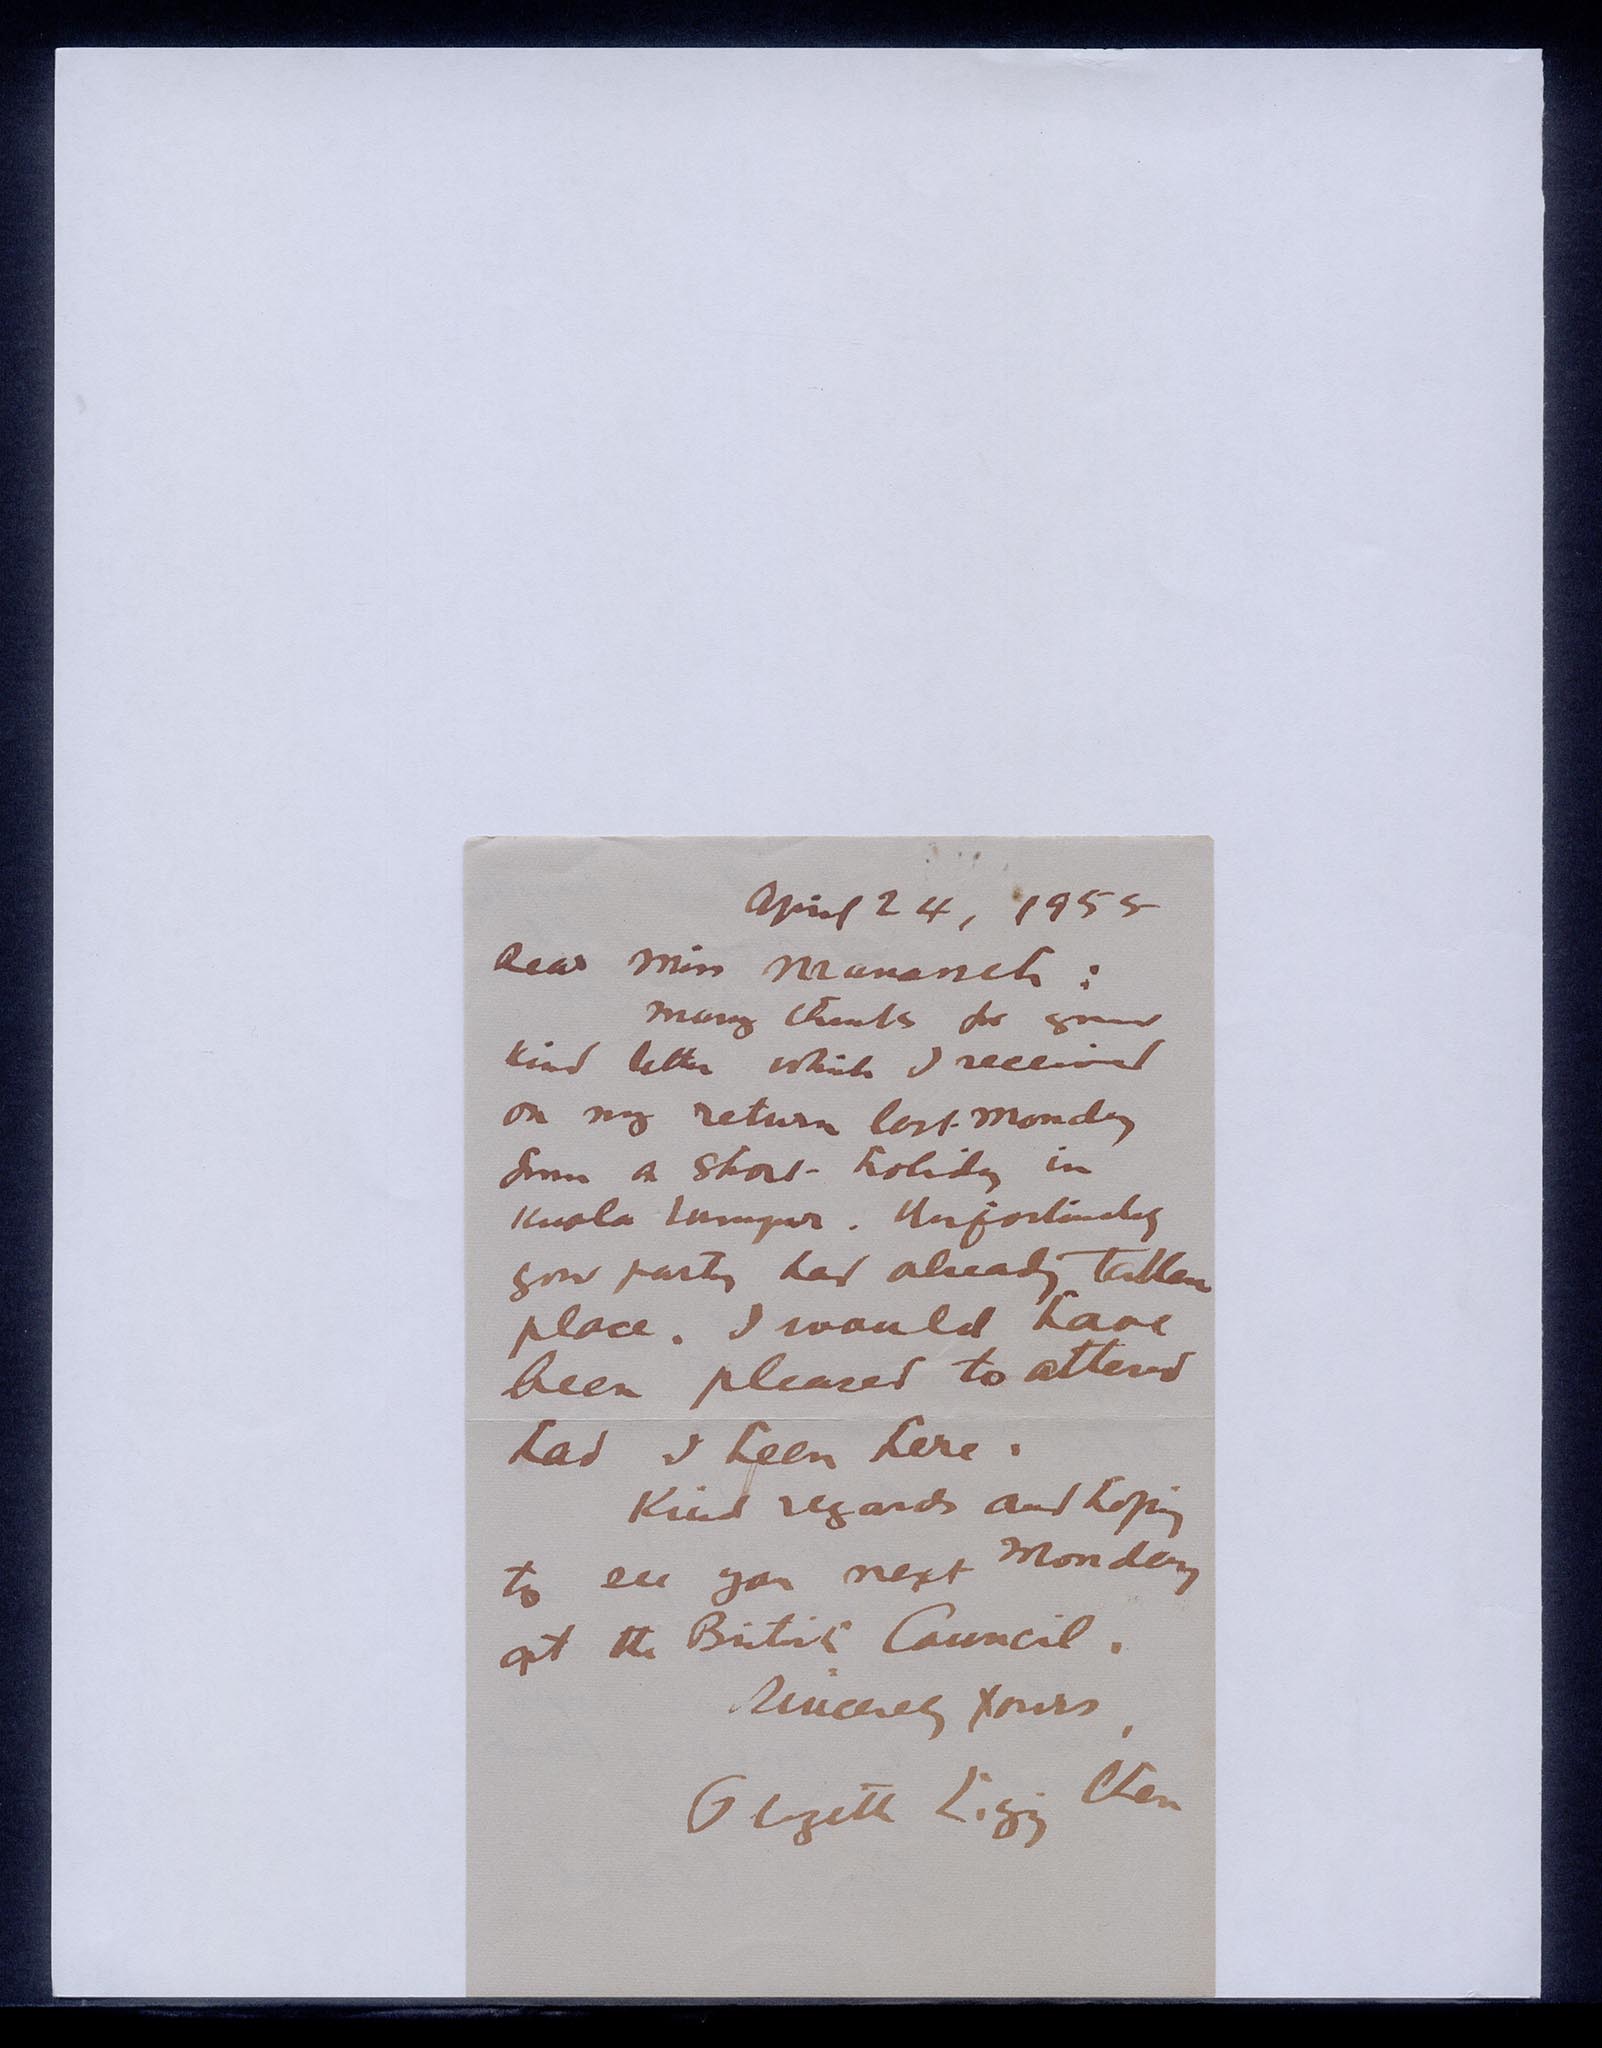 April 24, 1955
Dear Miss Manasseh :
Many thanks for your
kind letter which I received
on my return last Monday
from a short holiday in
Kuala Lumpur. Unfortunately
your party had already taken
place. I would have
been pleased to attend
had I been here.
Kind regards and hoping
to see you next Monday
at the British Council.
Sincerely Yours,
Georgette Liying Chen